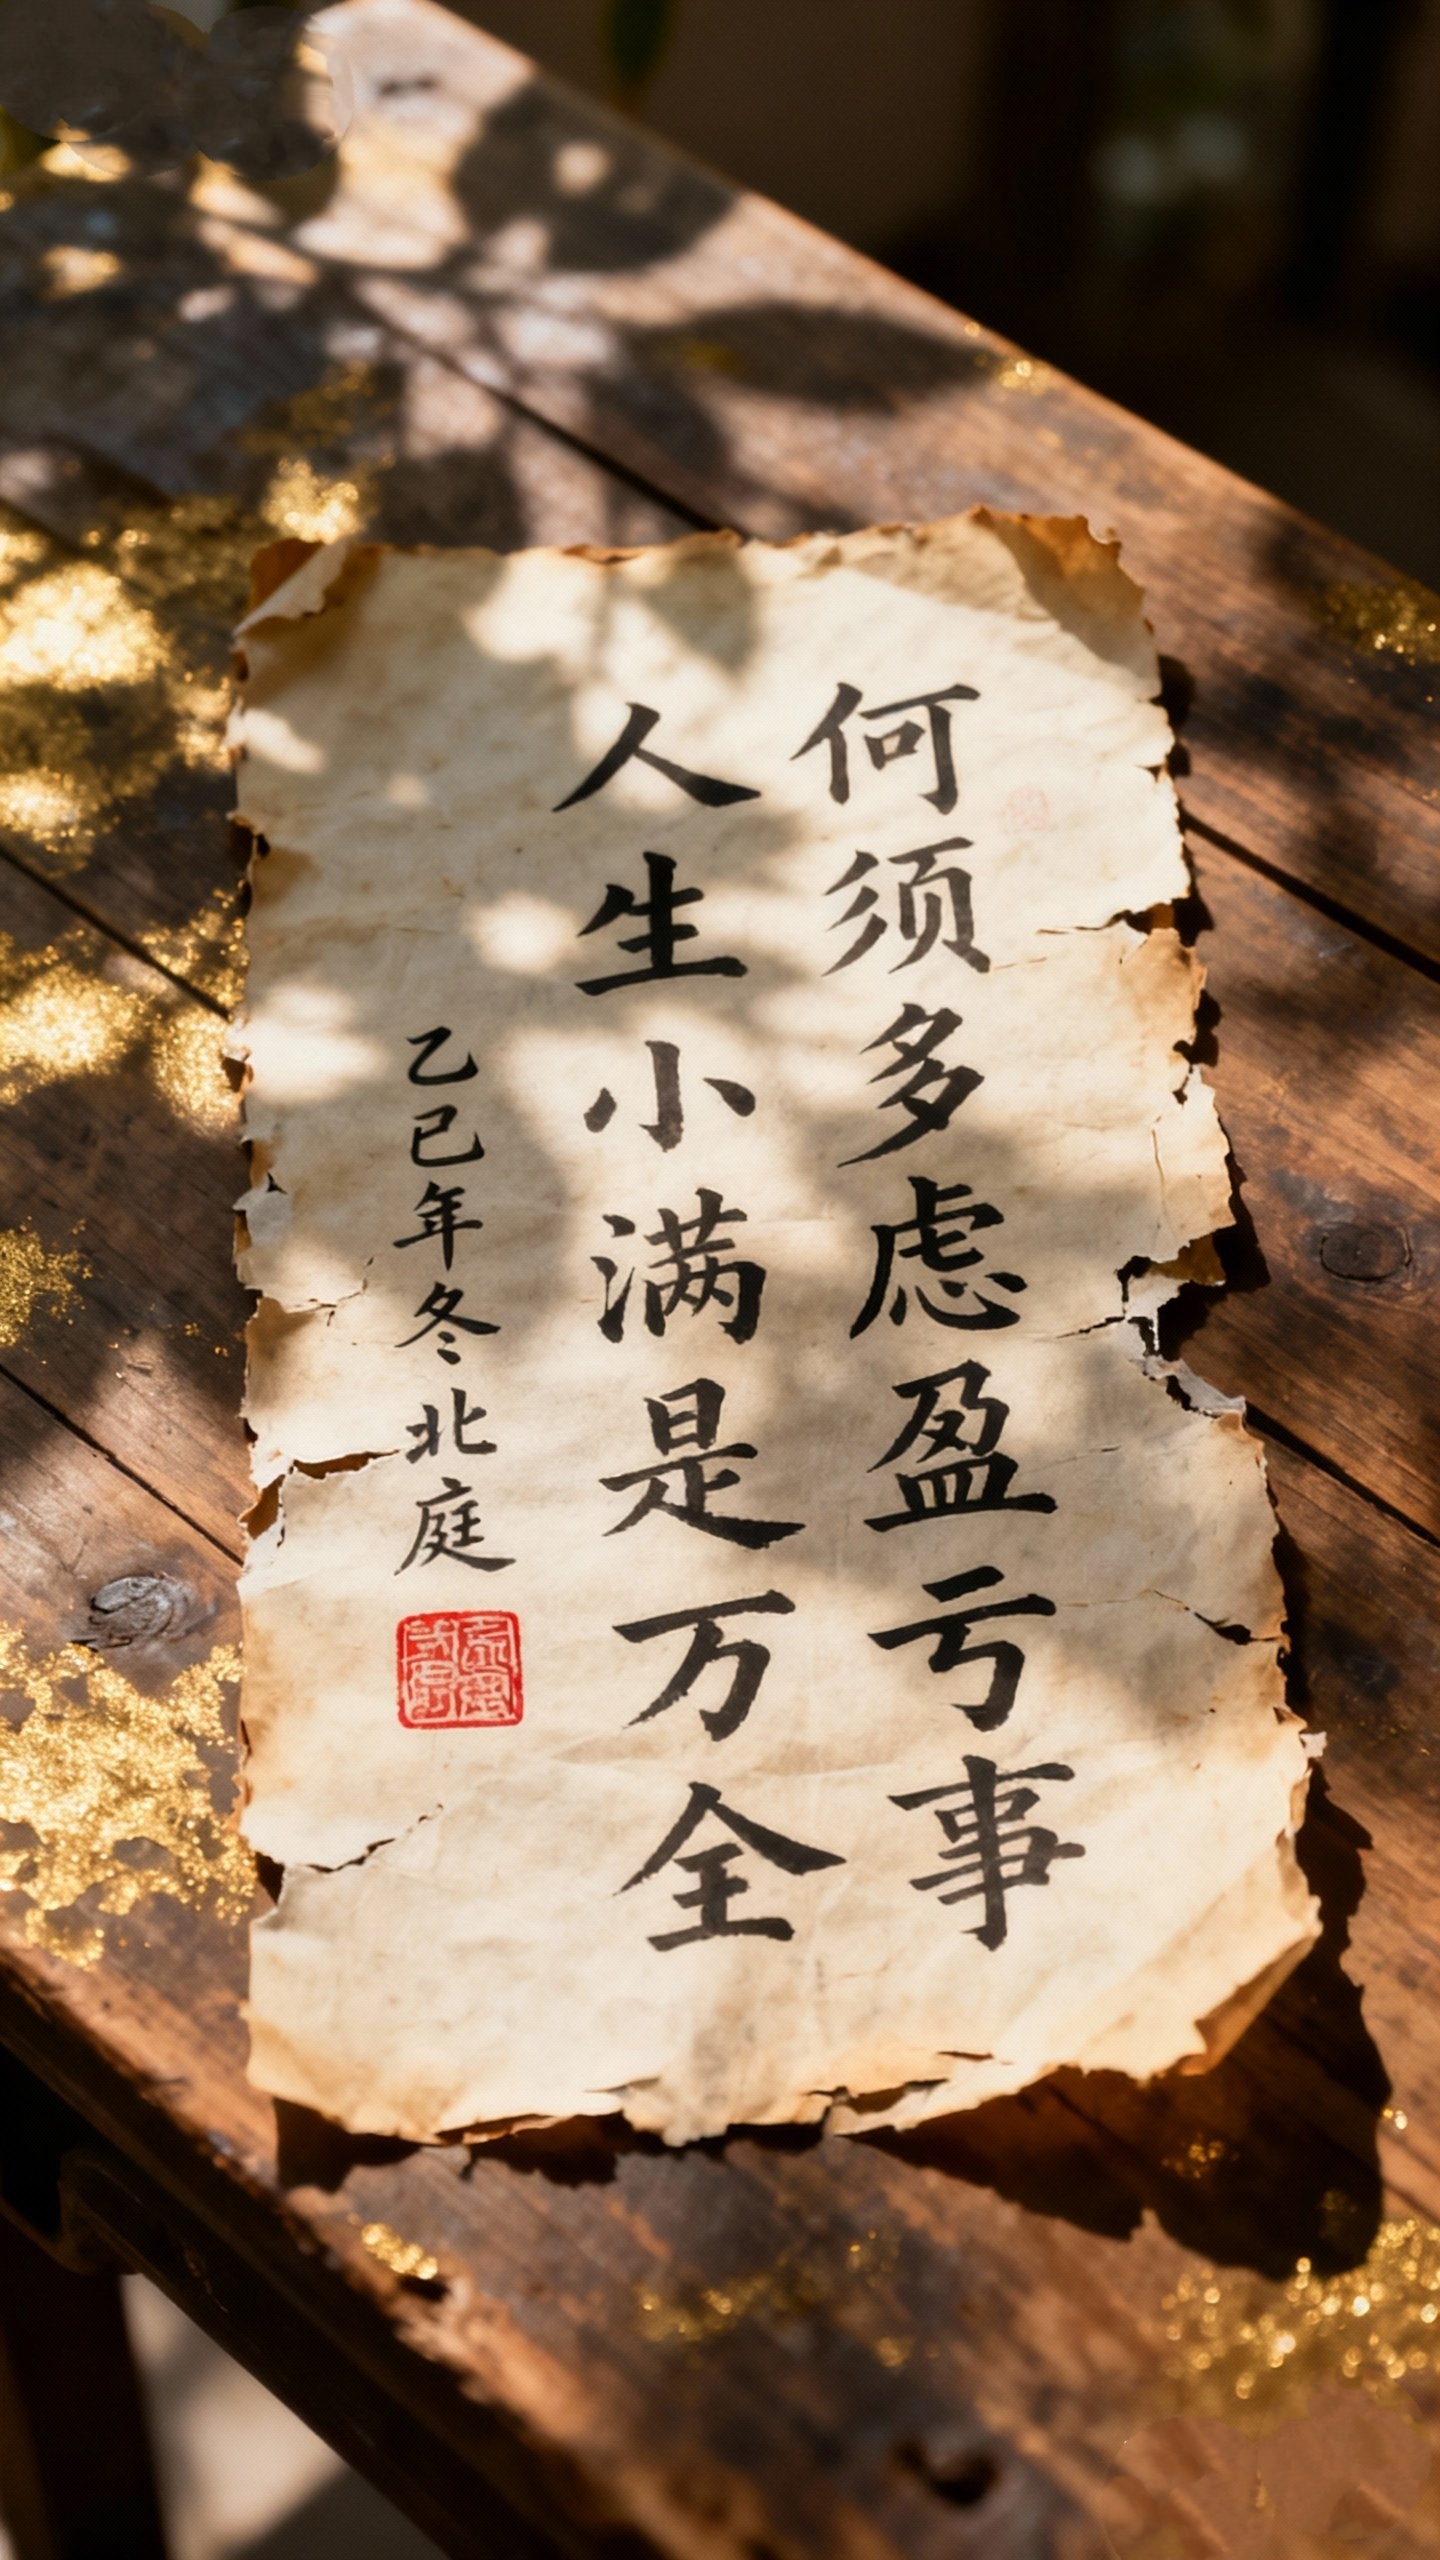 何须多虑盈亏事
人生小满是万全
乙巳年冬北庭